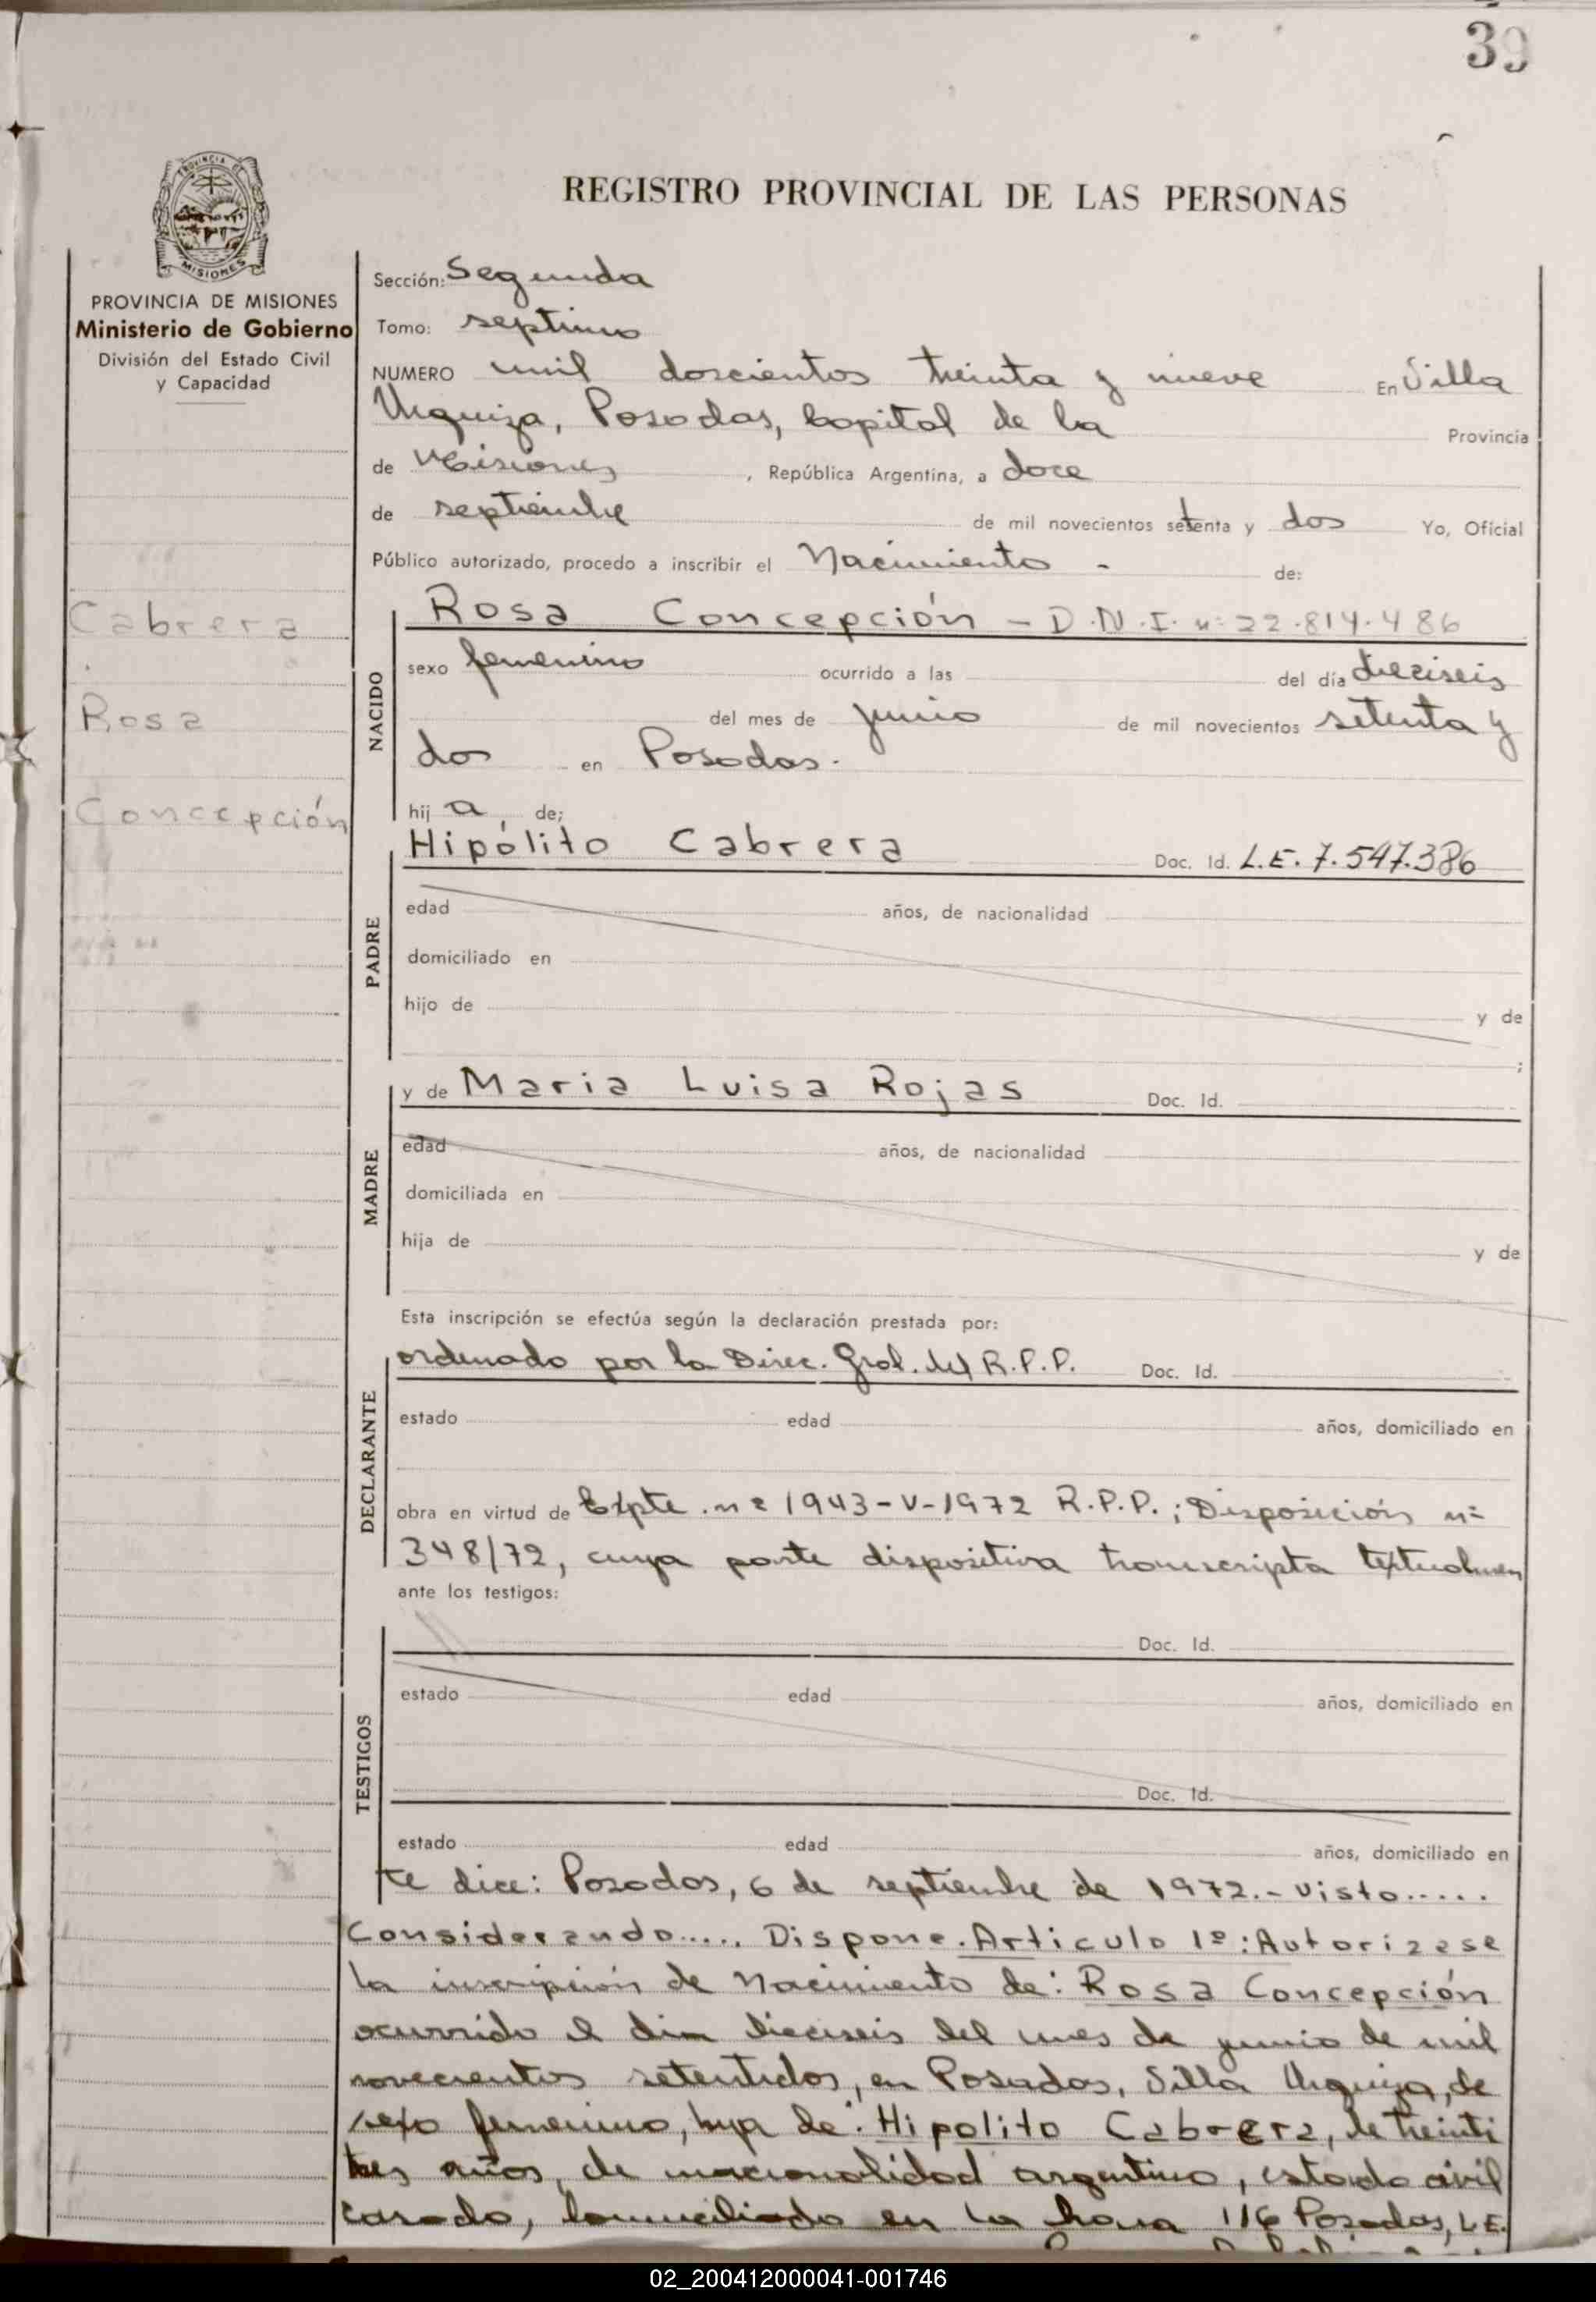 39
PROVINCIA DE
MISIONES
REGISTRO PROVINCIAL DE LAS PERSONAS
PROVINCIA DE MISIONES
Ministerio de Gobierno
División del Estado Civil
y Capacidad
Sección: Segunda
Tomo: septimo
NUMERO mil doscientos treinta y nueve En Villa
Urquiza, Posadas, Capital de la Provincia
de Misiones, República Argentina, a doce
de septiembre de mil novecientos setenta y dos Yo, Oficial
Público autorizado, procedo a inscribir el Nacimiento - de:
Cabrera
Rosa
Concepción
NACIDO
Rosa Concepción - D.N.I. nº 22.814.486
sexo femenino ocurrido a las del día dieciseis
del mes de junio de mil novecientos setenta y
dos en Posadas.
hij a, de;
PADRE
Hipólito Cabrera Doc. Id. L.E. 7.547.386
edad años, de nacionalidad
domiciliado en
hijo de y de
;
MADRE
y de Maria Luisa Rojas Doc. Id.
edad años, de nacionalidad
domiciliada en
hija de y de
Esta inscripción se efectúa según la declaración prestada por:
DECLARANTE
ordenado por la Direc. Gral. del R.P.P. Doc. Id.
estado edad años, domiciliado en
obra en virtud de Expte. nº 1943-V-1972 R.P.P.; Disposición nº
348/72, cuya parte dispositiva transcripta textualmen
ante los testigos:
TESTIGOS
Doc. Id.
estado edad años, domiciliado en
Doc. Id.
estado edad años, domiciliado en
te dice: Posadas, 6 de septiembre de 1972.- Visto.....
Considerando..... Dispone. Articulo 1º: Autorizase
la inscripción de Nacimiento de: Rosa Concepción
ocurrido el dia dieciseis del mes de junio de mil
novecientos setentidos, en Posadas, Villa Urquiza, de
sexo femenino, hija de: Hipolito Cabrera, de treinti
tres años, de nacionalidad argentino, estado civil
casado, domiciliado en la 116 Posadas, L.E.
02_200412000041-001746